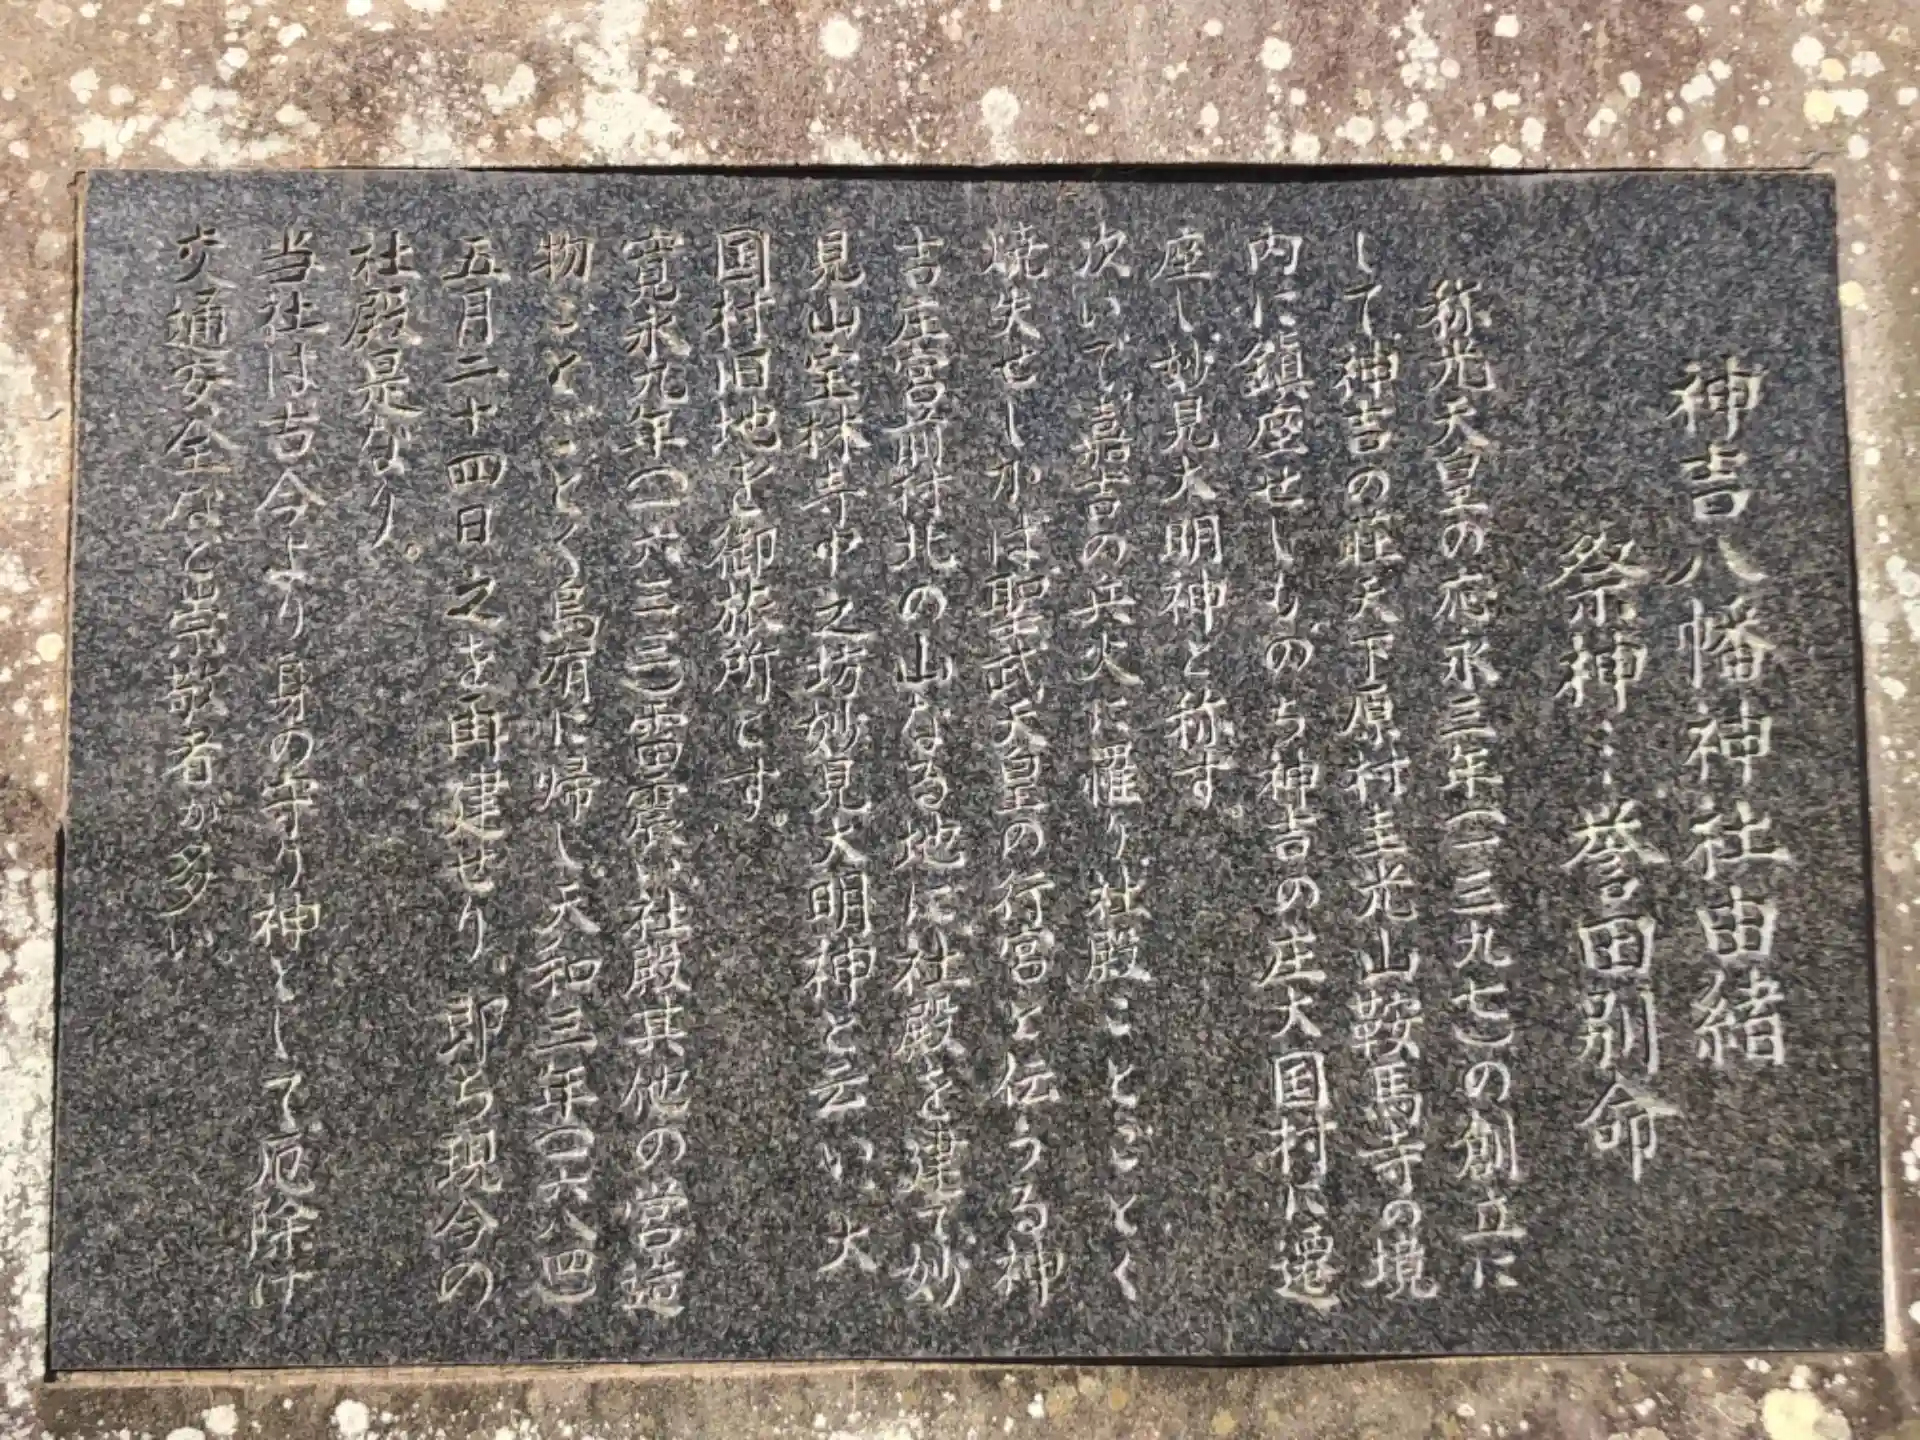 神吉八幡神社由緒
祭神…誉田別命
称光天皇の応永三年(一三九七)の創立に
して神吉の荘天下原村圭光山鞍馬寺の境
内に鎮座せしものち神吉の庄大国村に遷
座し、妙見大明神と称す。
次いで、嘉吉の兵火に罹り、社殿ことごとく
焼失せしかば聖武天皇の行宮と伝うる神
吉庄宮前村北の山なる地に社殿を建て、妙
見山宝林寺中之坊妙見大明神と云い、大
国村旧地を御旅所とす。
寛永九年(一六三三)雷震い社殿其他の営造
物ことごとく烏有に帰し、天和三年(一六八四)
五月二十四日之を再建せり。即ち現今の
社殿是なり。
当社は古今より身の守り神として厄除け
交通安全など崇敬者が多い。